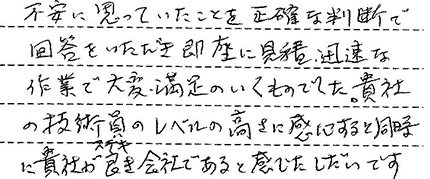 不安に思っていたことを正確な判断で
回答をいただき即座に見積、迅速な
作業で大変満足のいくものでした。貴社
の技術員のレベルの高さに感心すると同時
ステキ
に貴社が良き会社であると感じたしだいです